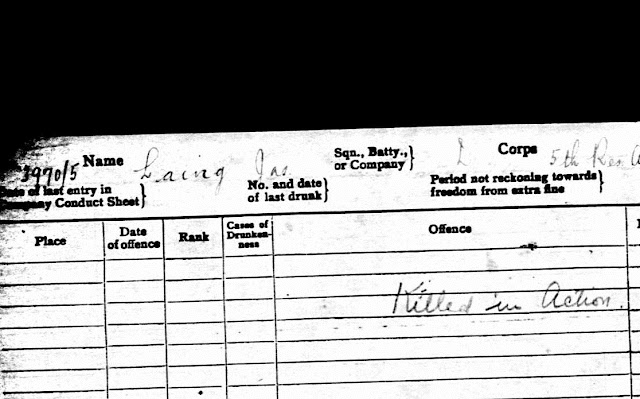 3970/5 Name Laing Jas. Sqn., Batty., or Company} Corps 5th Res.
Date of last entry in Company Conduct Sheet} No. and date of last drunk} Period not reckoning towards freedom from extra fine}
Place Date of offence Rank Cases of Drunken-ness Offence
Killed in Action.